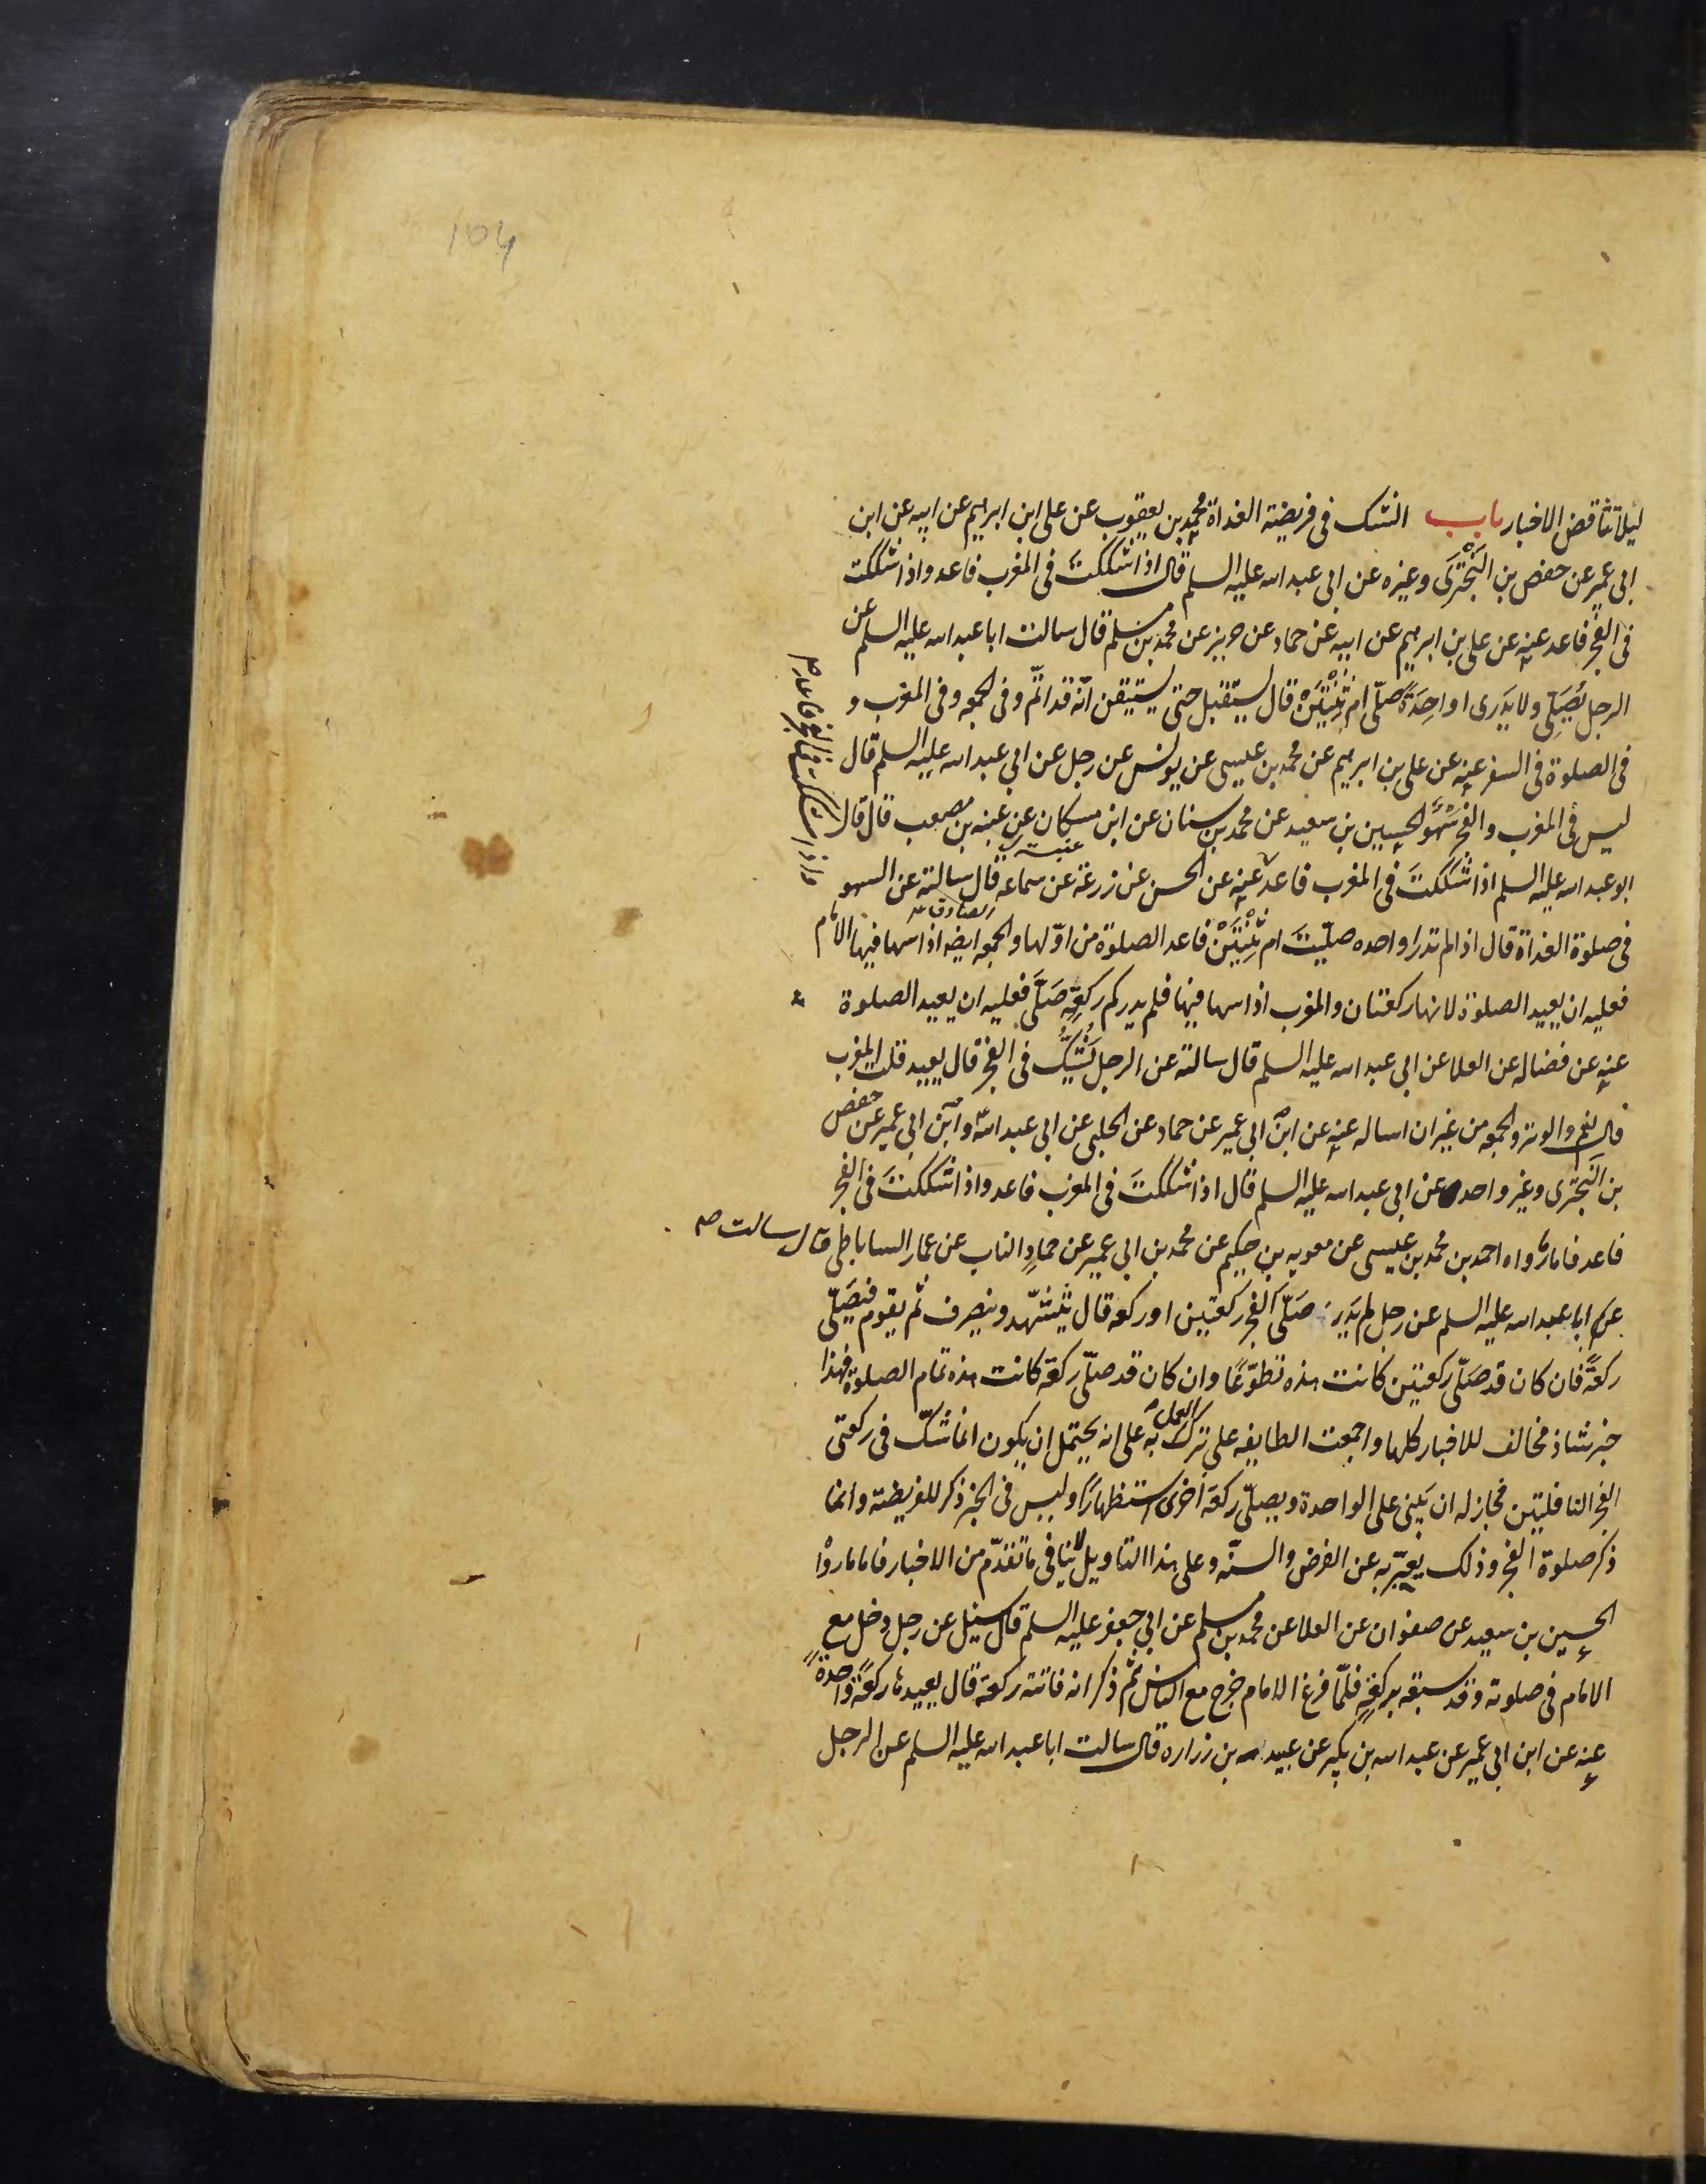 104
ليلا تتناقض الاخبار باب الشك فى فريضة الغداة محمد بن يعقوب عن على ابن ابرهيم عن ابيه عن ابن
ابى عمير عن حفص بن البَخْتَرى وغيره عن ابى عبد الله عليه السلم قال اذا شككتَ فى المغرب فاعد واذا شككت
فى الفجر فاعد عنه عن على بن ابرهيم عن ابيه عن حماد عن حريز عن محمد بن مسلم قال سالت ابا عبد الله عليه السلم عن
الرجل يُصَلّى ولا يَدرى اواحِدَةً صلّى ام ثِنْتَيْن قال يستقبل حتى يستيقن انّه قد اتمّ وفى الجمعه وفى المغرب و
فى الصلوة فى السفر عنه عن على بن ابرهيم عن محمد بن عيسى عن يونس عن رجل عن ابى عبد الله عليه السلم قال
ليس فى المغرب والفجر سَهْوٌ الحسين بن سعيد عن محمد بن سنان عن ابن مسكان عن عنبسه بن مصعب قال قال
عنبسه
ابو عبد الله عليه السلم اذا شككتَ فى المغرب فاعد عنه عن الحسن عن زرعة عن سماعه قال سالته عن السهو
واذا شككت فى الفجر فاعد
فى صلوة الغداة قال اذا لم تدر اواحده صلّيتَ ام ثِنْتَيْن فاعد الصلوة من اوّلها والجمعه ايضا اذا سها فيها الامام
فعليه ان يعيد الصلوة لانها ركعتان والمغرب اذا سها فيها فلم يدر كم ركعةٍ صَلّى فعليه ان يعيد الصلوة
عنه عن فضاله عن العلا عن ابى عبد الله عليه السلم قال سالته عن الرجل يَشُكُّ فى الفجر قال يعيد قلت المغرب
قال نعم والوتر والجمعه من غير ان اساله عنه عن ابن ابى عمير عن حماد عن الحلبى عن ابى عبد الله وابن ابى عمير عن حفص
بن البَخْتَرى وغير واحد عن ابى عبد الله عليه السلم قال اذا شككتَ فى المغرب فاعد واذا شككتَ فى الفجر
فاعد فاما ما رواه احمد بن محمد بن عيسى عن معويه بن حكيم عن محمد بن ابى عمير عن حمادٍ الناب عن عمار الساباطى قال سالت
ابا عبد الله عليه السلم عن رجل لم يَدرِ صَلّى الفجر ركعتين او ركعه قال يَتَشهّد وينصرف ثم يقوم فيُصَلّى
ركعةً فان كان قد صَلّى ركعتين كانت هذه تطوّعًا وان كان قد صلّى ركعة كانت هذه تمام الصلوة فهذا
خبر شاذ مخالف للاخبار كلها واجمعت الطايفه على ترك العمل به على انه يحتمل ان يكون انما شكّ فى ركعتى
الفجر النافلتين فجاز له ان يَبنى على الواحدة ويصلّى ركعة اُخرى استظهارًا وليس فى الخبر ذكر للفريضة وانما
ذكر صلوة الفجر وذلك يعبّر به عن الفرض والسنّه وعلى هذا التاويل لا ينافى ما تقدّم من الاخبار فاما ما رواه
الحسين بن سعيد عن صفوان عن العلا عن محمد بن مسلم عن ابى جعفر عليه السلم قال سئل عن رجل دخل مع
الامام فى صلوته وقد سبقه بركعةٍ فلمّا فرغ الامام خرج مع الناس ثم ذكر انه فاتته ركعة قال يعيدها ركعةً واحدةً
عنه عن ابن ابى عمير عن عبد الله بن بكير عن عبيد الله بن زراره قال سالت ابا عبد الله عليه السلم عن الرجل